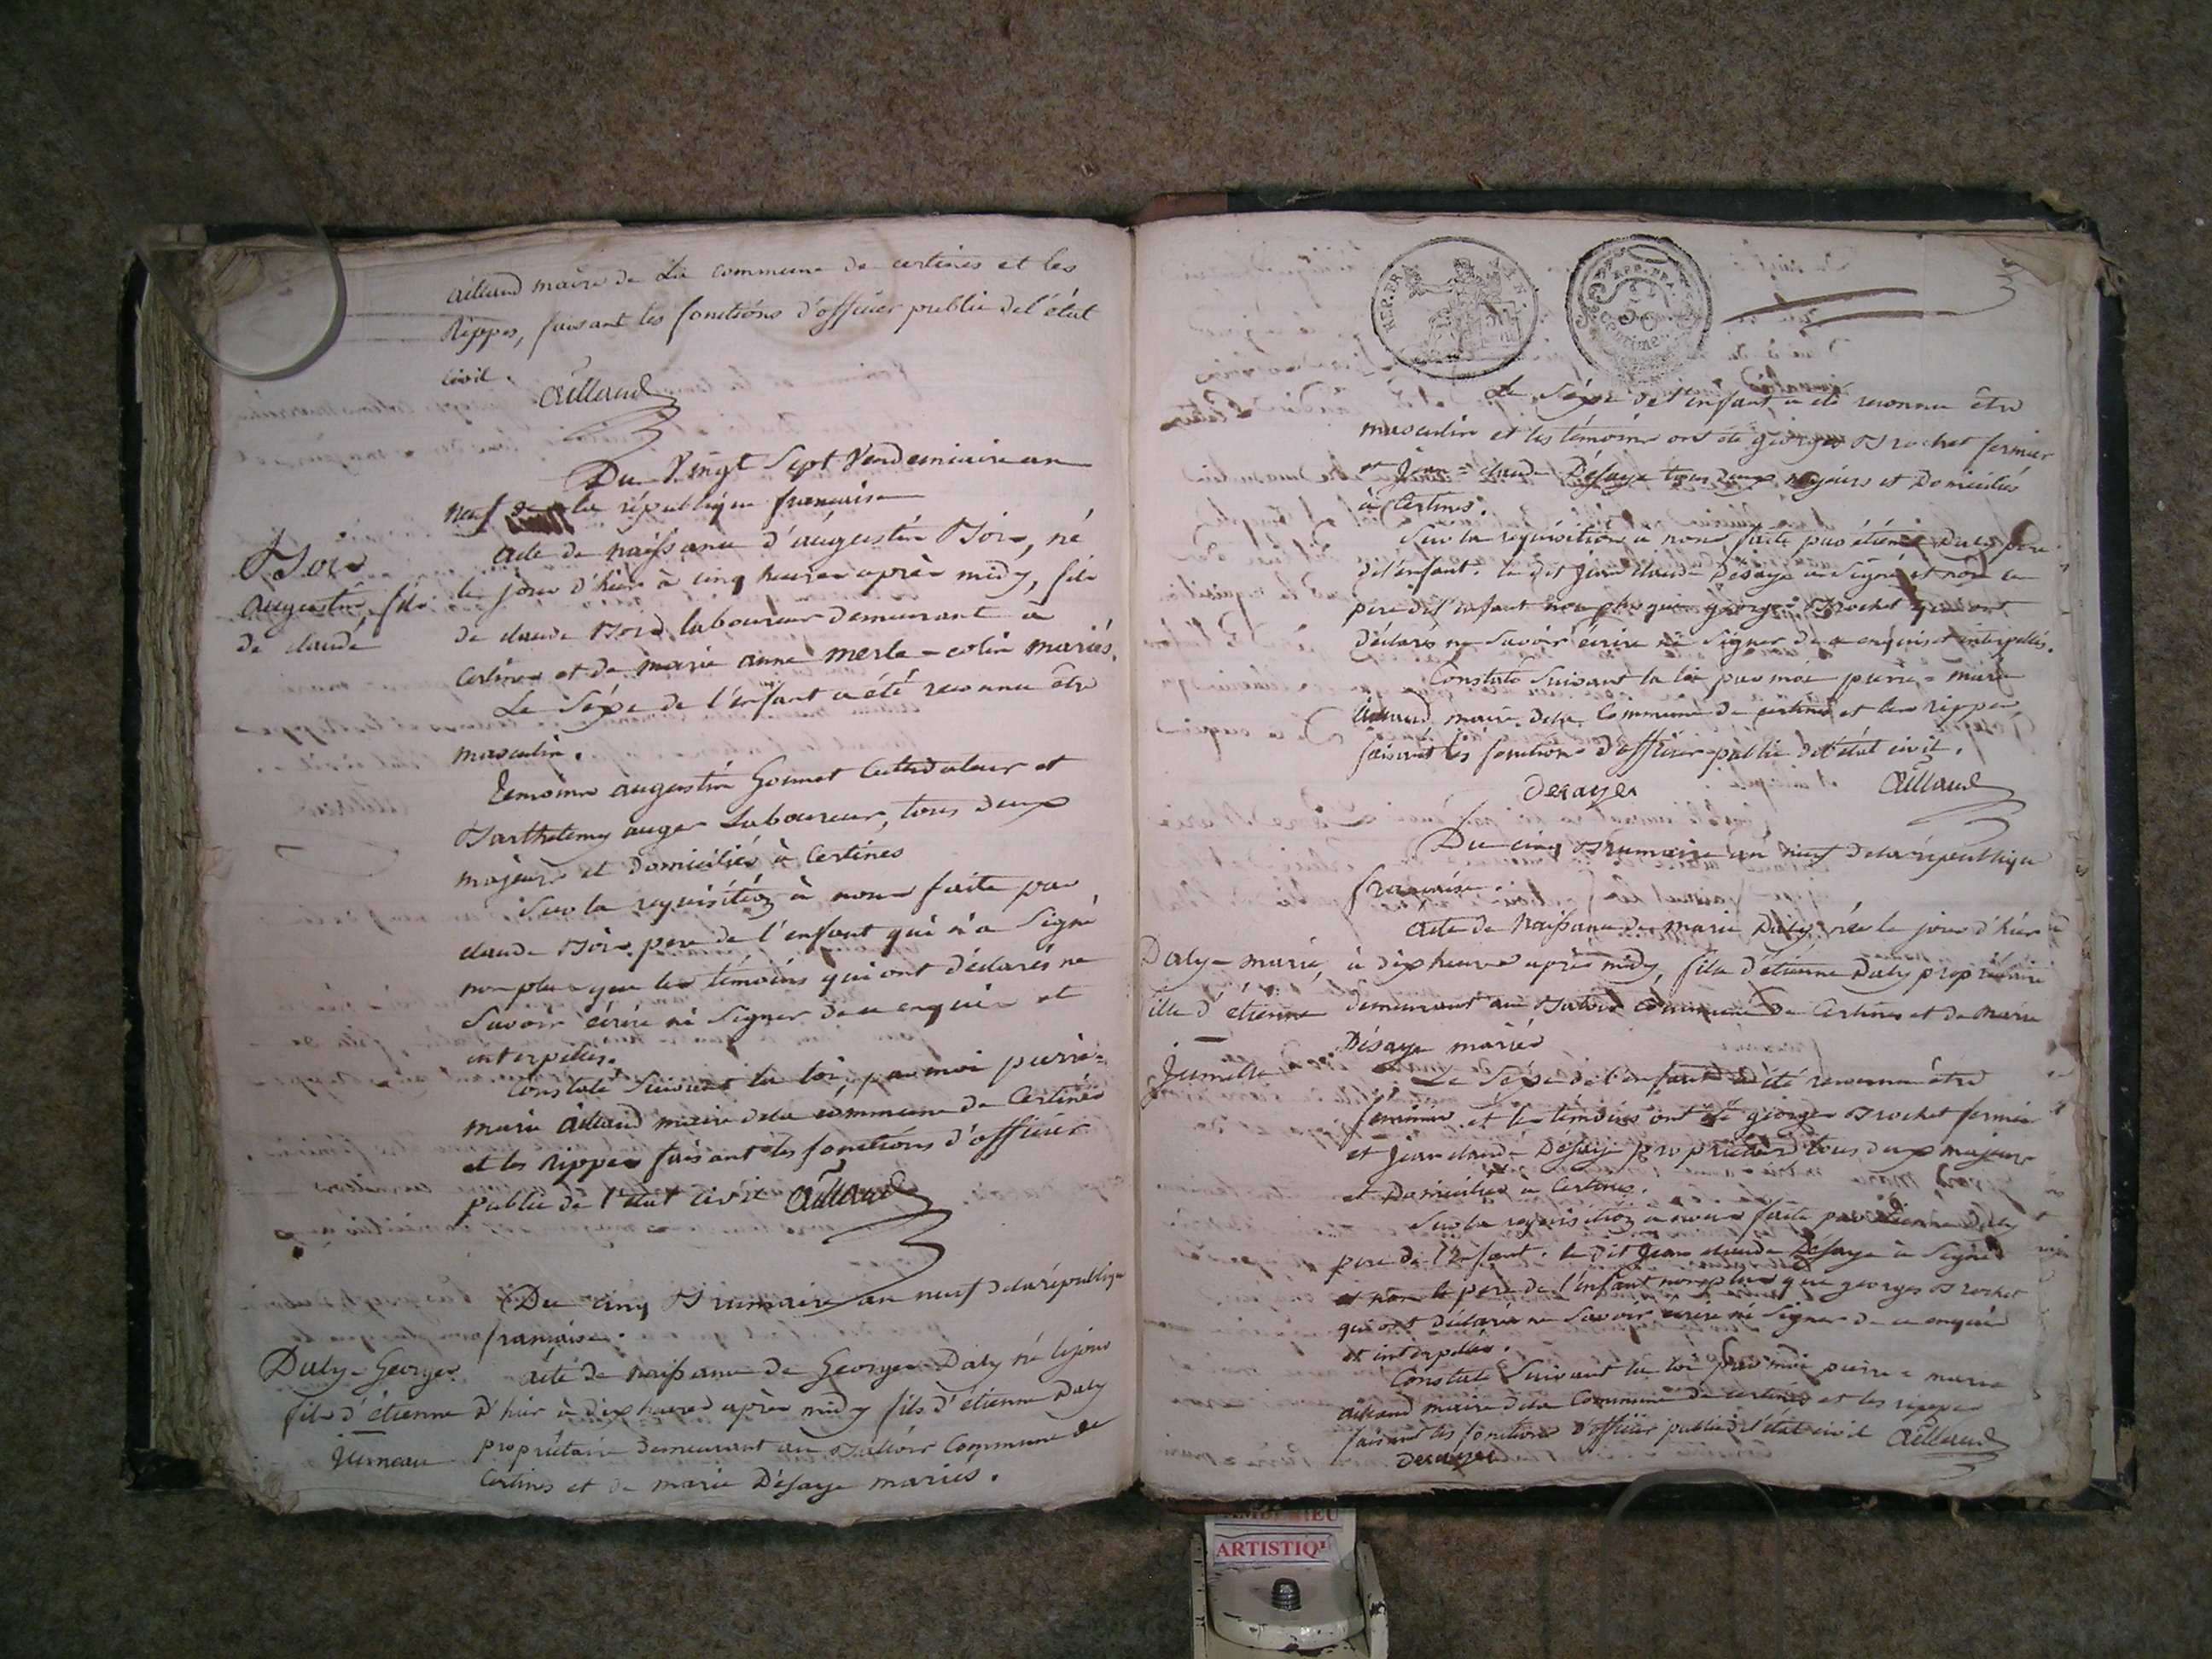 aillaud maire de La commune de certines et les
Rippes, faisant les fonctions d'officier public de l'état
civil.
Aillaud
Du Vingt Sept Vendemiaire an
neuf de la république française
Bois
augustin, fils
de claude
acte de naissance d'augustin Bois, né
le jour d'hier à cinq heures après midy, fils
de claude Bois laboureur demeurant à
Certines et de marie anne merle-colin mariés.
Le Séxe de l'enfant a été reconnu être
masculin.
Temoins augustin Gounet Cultivateur et
Barthelemy auger Laboureur, tous deux
majeurs et domiciliés à Certines
Sur la réquisition à nous faite par
claude Bois pere de l'enfant qui n'a Signé
non plus que les témoins qui ont déclarés ne
Savoir écrire ni Signer de ce enquis et
interpellés.
Constaté Suivant la loi, par moi pierre=
marie aillaud maire de la commune de Certines
et les Rippes faisant les fonctions d'officier
public de l'état civil Aillaud
Du cinq Brumaire an neuf de la république
française.
Daly-Georges
fils d'étienne
Jumeau
acte de naissance de Georges Daly né le jour
d'hier à dix heures après midy fils d'étienne Daly
propriétaire demeurant au Commune de
Certines et de marie Désaye mariés.
REP. FRA.
50
Centimes
Le Séxe de l'enfant a été reconnu être
masculin et les témoins ont été georges Brochet fermier
et Jean=claude Désaye tous deux majeurs et Domiciliés
à Certines.
Sur la réquisition à nous faite par étienne Daly pere
de l'enfant. le dit Jean claude Désaye a Signé et non le
pere de l'enfant non plus que georges Brochet qui ont
déclarés ne Savoir écrire ni Signer de ce enquis et interpellés.
Constaté Suivant la loi par moi pierre=marie
aillaud maire de la Commune de certines et les rippes
faisant les fonctions d'officier public de l'état civil.
Desayes Aillaud
Du cinq Brumaire an neuf de la république
française.
Daly-marie,
fille d'étienne
Jumelle
acte de Naissance de marie Daly née le jour d'hier
à dix heures après midy, fille d'étienne Daly propriétaire
demeurant au commune de Certines et de marie
Désaye mariés
Le Séxe de l'enfant a été reconnu être
féminin et les témoins ont été georges Brochet fermier
et Jean claude Désaye propriétaire tous deux majeurs
et Domiciliés à Certines.
Sur la réquisition à nous faite par étienne Daly
pere de l'enfant. le dit Jean claude Désaye a Signé
et non le pere de l'enfant non plus que georges Brochet
qui ont déclaré ne Savoir écrire ni Signer de ce enquis
et interpellés.
Constaté Suivant la loi par moi pierre=marie
aillaud maire de la Commune de certines et les rippes
faisant les fonctions d'officier public de l'état civil Aillaud
Desayes
ARTISTIQ